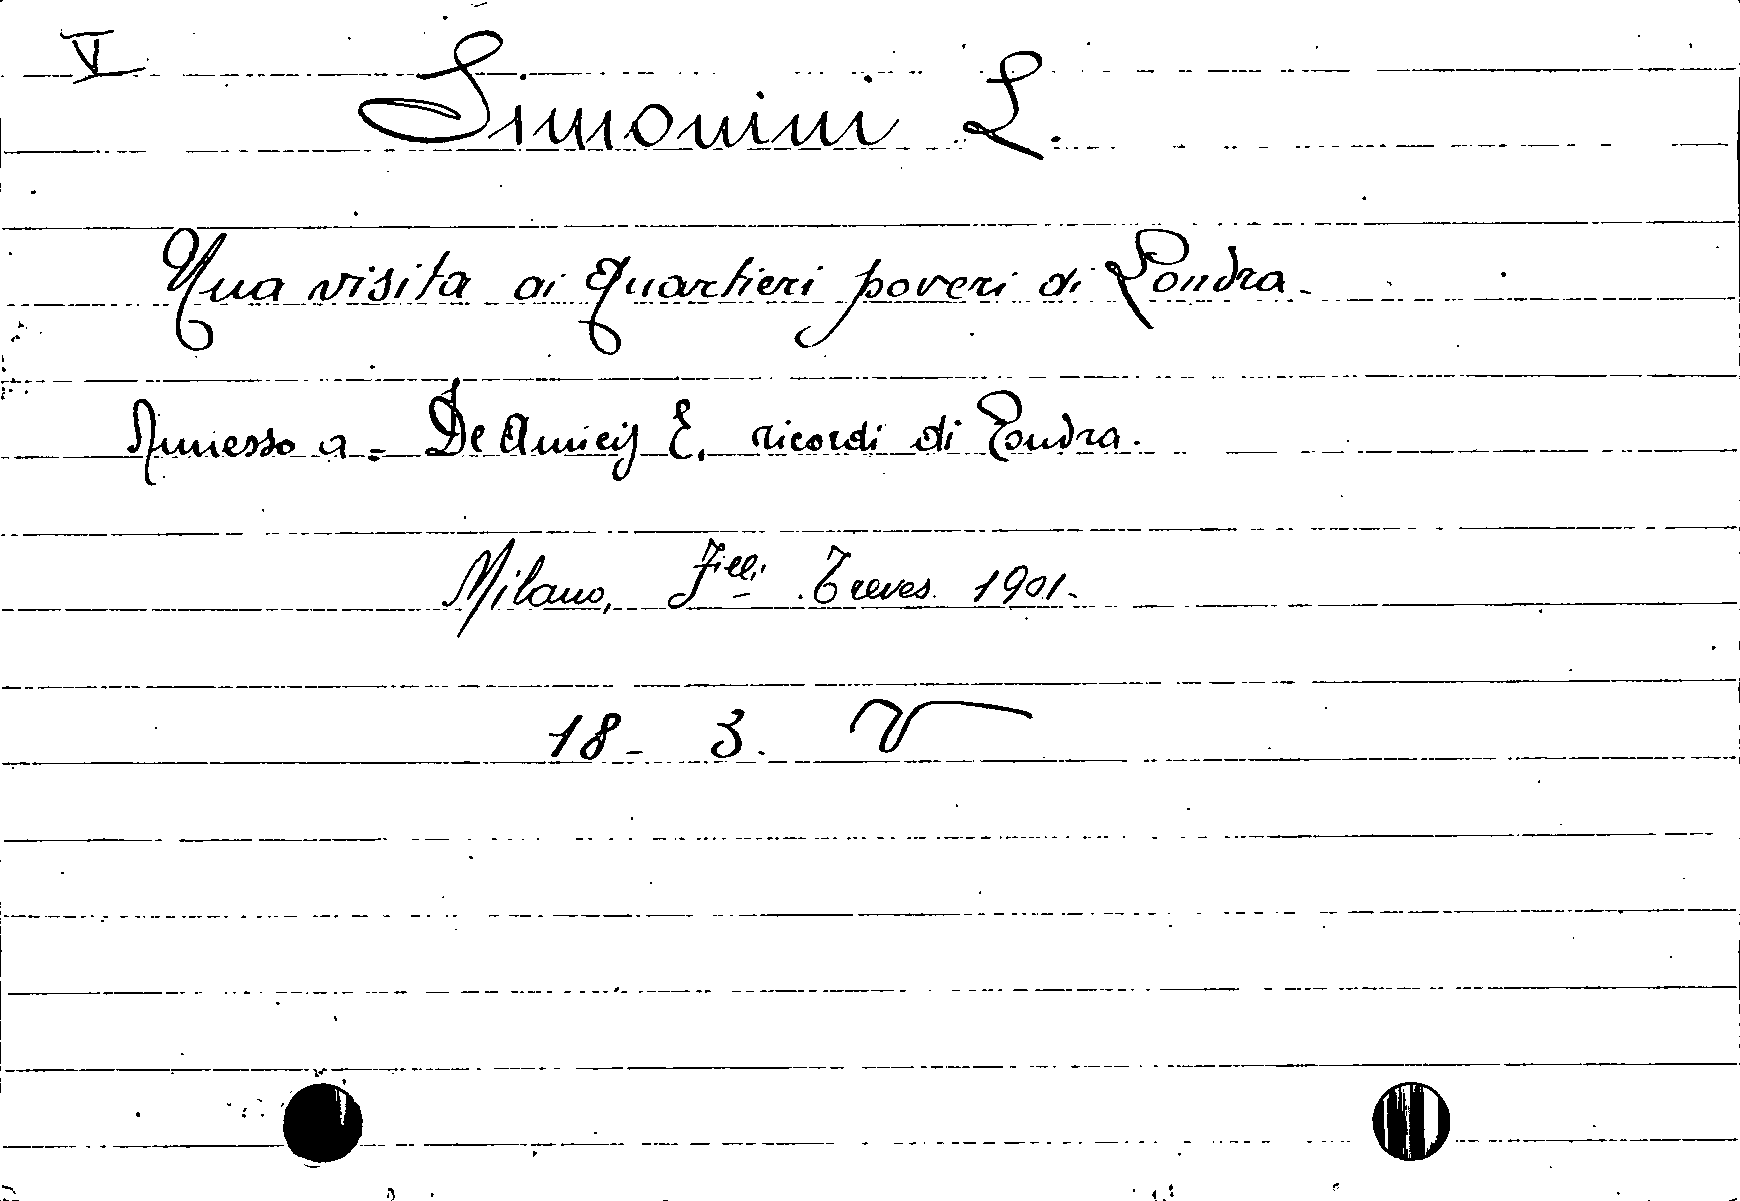 V
Simonini L.
Una visita ai Quartieri poveri di Londra.
Annesso a = De Amicis E. ricordi di Londra.
Milano, F.lli Treves 1901.
18 - 3. V